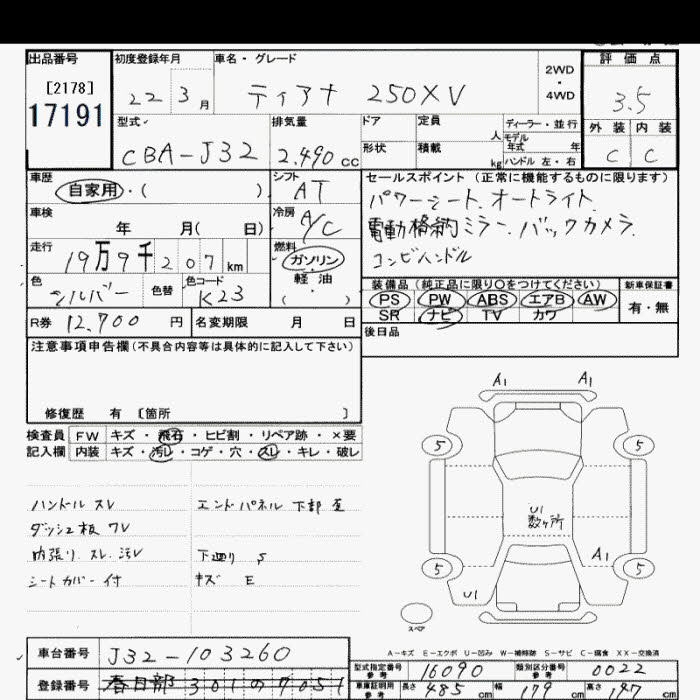 出品番号 初度登録年月 車名・グレード 2WD・4WD 評価点
[2178]
17191 22 3月 ティアナ 250XV 3.5
型式 排気量 ドア 定員 人 ディーラー・並行 外装 内装
モデル年式 年
CBA-J32 2,490cc 形状 積載 kg ハンドル 左・右 C C
車歴 シフト セールスポイント (正常に機能するものに限ります)
自家用・( ) AT パワーシート、オートライト
車検 年 月( 日) 冷房 A/C 電動格納ミラー、バックカメラ、
走行 燃料 コンビハンドル
19万9千207km ガソリン
色 色替 色コード 軽油 装備品 (純正品に限り○をつけてください) 新車保証書
シルバー K23 ( ) PS PW ABS エアB AW 有・無
SR ナビ TV カワ
R券 12,700円 名変期限 月 日 後日品
注意事項申告欄(不具合内容等は具体的に記入して下さい)
修復歴 有 〔箇所 〕
検査員 FW キズ・飛石・ヒビ割・リペア跡・×要
記入欄 内装 キズ・汚レ・コゲ・穴・スレ・キレ・破レ
ハンドル スレ エンドパネル 下部 歪
ダッシュ板 ワレ
内張り スレ 汚レ 下廻り S
シートカバー付 キズ E
A1 A1
5 5
U1
数ヶ所
A1
5 5
U1
スペア
A-キズ E-エクボ U-凹み W-補修跡 S-サビ C-腐食 XX-交換済
車台番号 J32-103260 型式指定番号 参考 16090 類別区分番号 参考 0022
登録番号 春日部 301 の 7051 車庫証明用 参考 長さ 485cm 幅 179cm 高さ 147cm